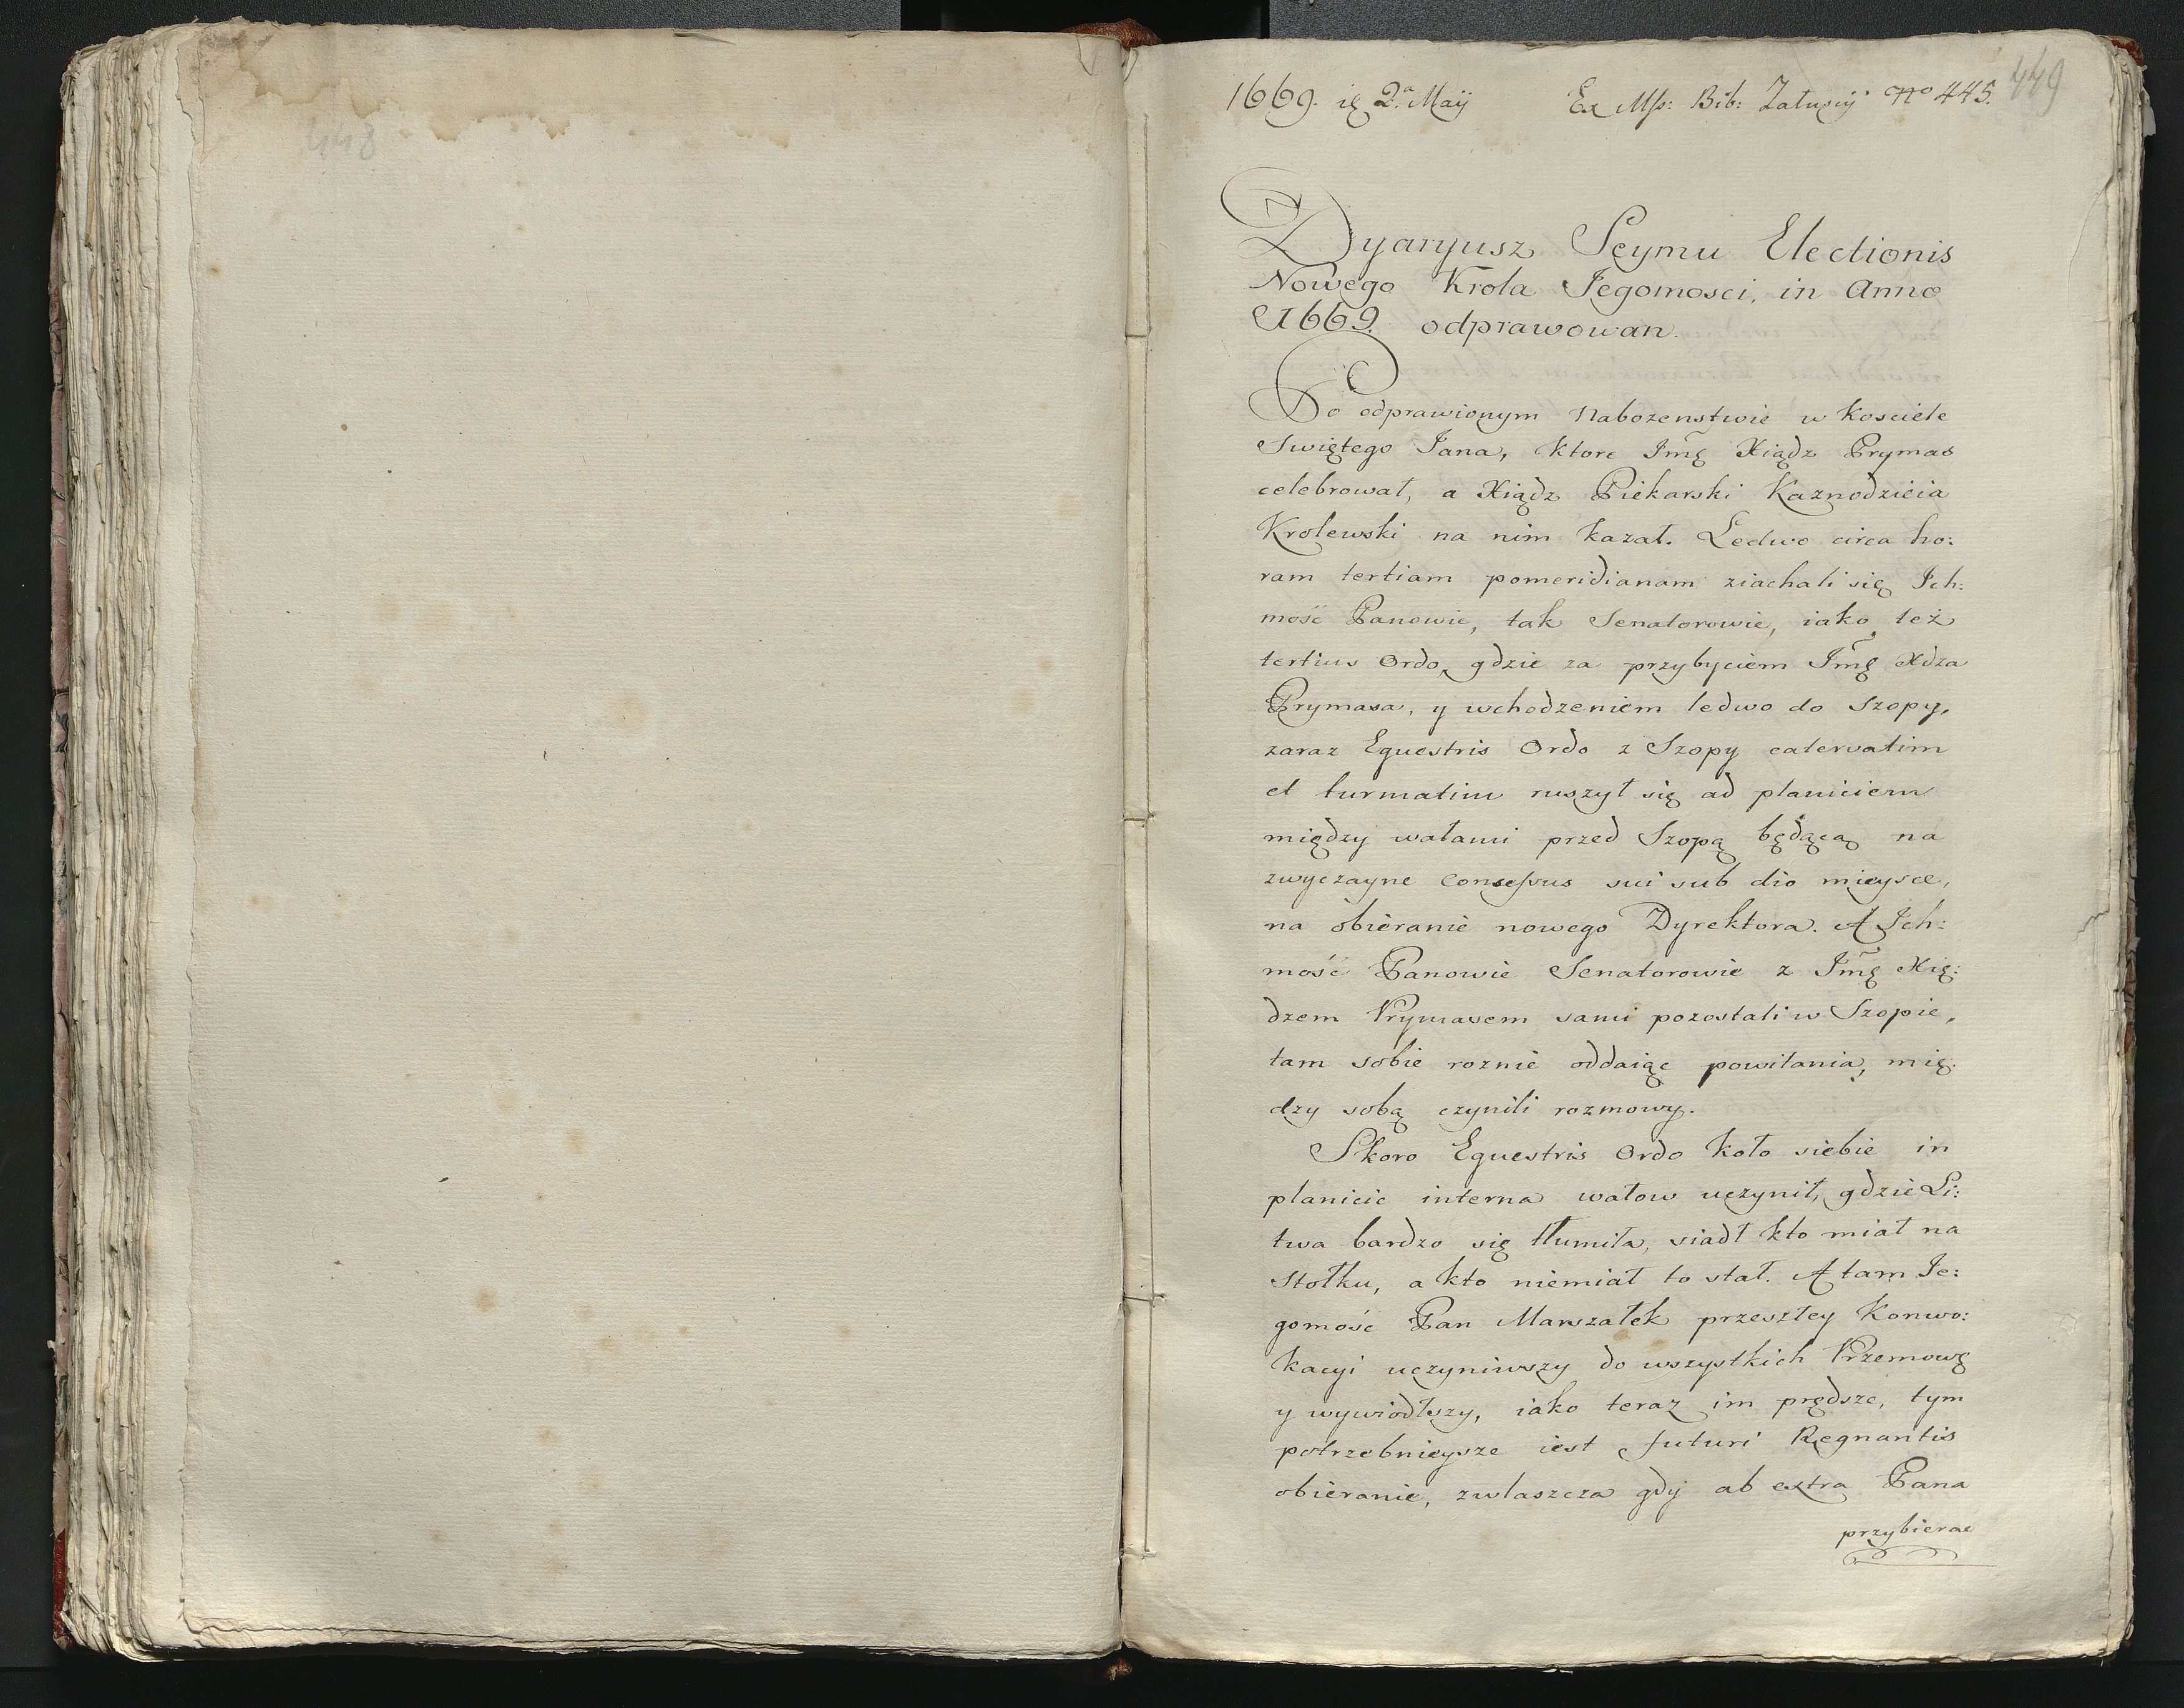 448
449
1669. ię 2.ª Maÿ Ex Mſs: Bib: Zaluscÿ No 445.
Dyaryusz Seymu Electionis
Nowego Krola Jegomosci, in Anno
1669. odprawowan.
Po odprawionym Nabozenstwie w Kosciele
Swiętego Jana, ktore Jmę Xiądz Prymas
celebrował, a Xiądz Piekarski Kaznodzieia
Krolewski na nim kazał. Ledwo circa ho:
ram tertiam pomeridianam ziachali się Ich:
mość Panowie, tak Senatorowie, iako też
tertius Ordo, gdzie za przybyciem Jmę Xdza
Prymasa, y wchodzeniem ledwo do Szopy,
zaraz Equestris Ordo z Szopy catervatim
et turmatim ruszył się ad planiciem
między wałami przed Szopą będącą na
zwyczayne Conseſsus sui sub dio mieysce,
na obieranie nowego Dyrektora. A Ich:
mość Panowie Senatorowie z Jmę Xię:
dzem Prymasem sami pozostali w Szopie,
tam sobie roznie oddaiąc powitania, mię:
dzy sobą czynili rozmowy.
Skoro Equestris Ordo koło siebie in
planicie interna wałow uczynił, gdzie Li:
twa bardzo się tłumiła, siadł kto miał na
Stołku, a kto niemiał to stał. A tam Je:
gomość Pan Marszałek przeszłey Konwo:
kacyi uczyniwszy do wszystkich Przemowę
y wywiodłszy, iako teraz im prędsze, tym
potrzebnieysze iest futuri Regnantis
obieranie, zwlaszcza gdy ab extra Pana
przybierac